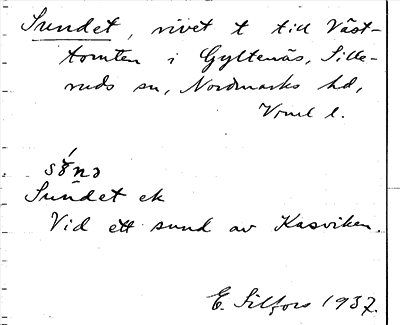 Sundet, rivet t till Väst-
tomten i Gyltenäs, Sille-
ruds sn, Nordmarks hd,
Vrml l.
Sundet ek
Vid ett sund av Kasviken.
E. Silfors 1937.